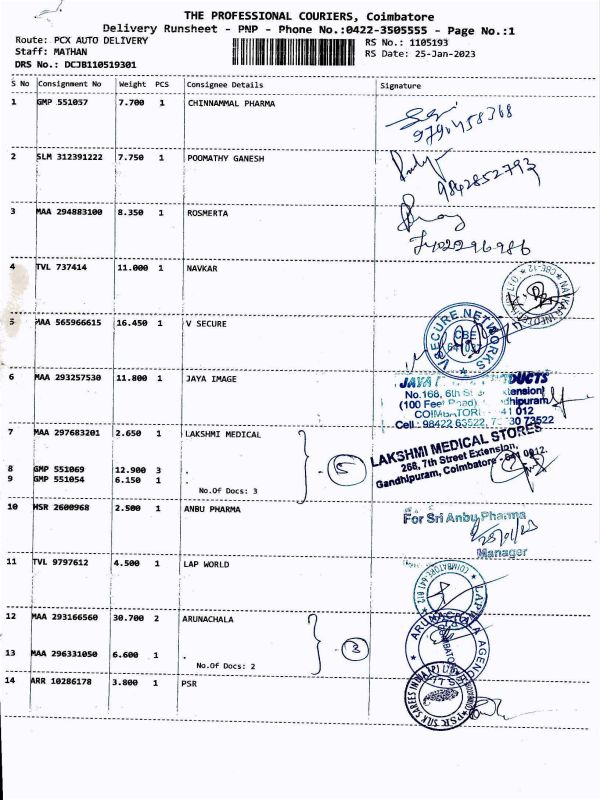 THE PROFESSIONAL COURIERS, Coimbatore
Delivery Runsheet - PNP - Phone No.:0422-3505555 - Page No.:1
Route: PCX AUTO DELIVERY
RS No.: 1105193
Staff: MATHAN
RS Date: 25-Jan-2023
DRS No.: DCJB110519301
S No Consignment No Weight PCS Consignee Details Signature
1 GMP 551057 7.700 1 CHINNAMMAL PHARMA
9790458368
2 SLM 312391222 7.750 1 POOMATHY GANESH
9842852793
3 MAA 294883100 8.350 1 ROSMERTA
4 TVL 737414 11.000 1 NAVKAR
5 MAA 565966615 16.450 1 V SECURE
VSECURE NETWORKS
CBE
6 MAA 293257530 11.800 1 JAYA IMAGE
JAYA
No.168, 6th
(100 Feet
012
Cell : 98422
73522
7 MAA 297683201 2.650 1 LAKSHMI MEDICAL
LAKSHMI MEDICAL STORES
268, 7th Street Extension,
Gandhipuram, Coimbatore - 641 0012.
8 GMP 551069 12.900 3 .
5
9 GMP 551054 6.150 1 .
No.Of Docs: 3
10 MSR 2600968 2.500 1 ANBU PHARMA
For Sri Anbu Pharma
25/01/23
Manager
11 TVL 9797612 4.500 1 LAP WORLD
COIMBATORE-641 012
12 MAA 293166560 30.700 2 ARUNACHALA
ARUNACHALA AGENC
3
13 MAA 296331050 6.600 1 .
No.Of Docs: 2
14 ARR 10286178 3.800 1 PSR
PSR SILK SAREES INDIA